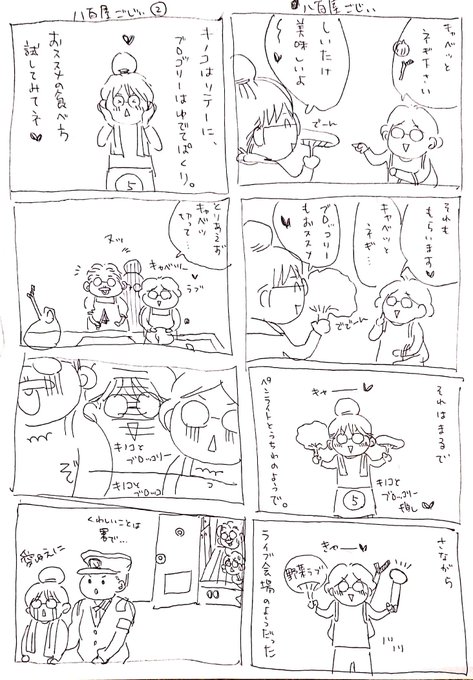 八百屋ごじぃ
キャベツと
ネギ下さい
しいたけ
美味しいよ
でーん
それも
もらいます♥
キャベツと
ネギ…
ブロッコリー
もおススメ
ででーん
それはまるで
ペンライトとうちわのようで。
キャー♥
キノコと
ブロッコリー
推し
5
さながら
ライブ会場のようだった
きゃー♥
野菜ラブ
八百屋ごじぃ②
キノコはソテーに、
ブロッコリーはゆでてぱくり。
おススメの食べ方
試してみてネ♥
5
とりあえず
キャベツ
切って…
ヌッ
キャベツー
ラブ
キノコと
ブロッコリー
キノコと
ブロッコ
くわしいことは
署で…
愛ゆえに